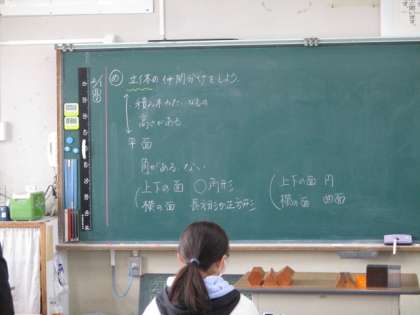 め 立体の仲間分けをしよう。
積み木みたいなもの
高さがある
平面
角がある、ない
上下の面 ○角形
横の面 長方形か正方形
上下の面 円
横の面 曲面